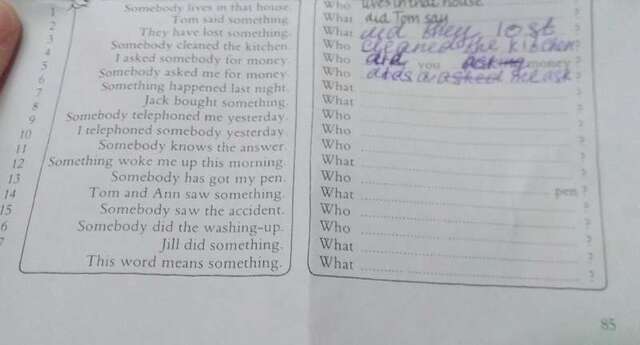 1 Somebody lives in that house. Who lives in that house ?
2 Tom said something. What did Tom say ?
3 They have lost something. What did they lost ?
4 Somebody cleaned the kitchen. Who cleaned the kitchen ?
5 I asked somebody for money. Who did you asking money ?
6 Somebody asked me for money. Who asked me ask ?
7 Something happened last night. What ?
8 Jack bought something. What ?
9 Somebody telephoned me yesterday. Who ?
10 I telephoned somebody yesterday. Who ?
11 Somebody knows the answer. Who ?
12 Something woke me up this morning. What ?
13 Somebody has got my pen. Who pen ?
14 Tom and Ann saw something. What ?
15 Somebody saw the accident. Who ?
6 Somebody did the washing-up. Who ?
7 Jill did something. What ?
This word means something. What ?
85